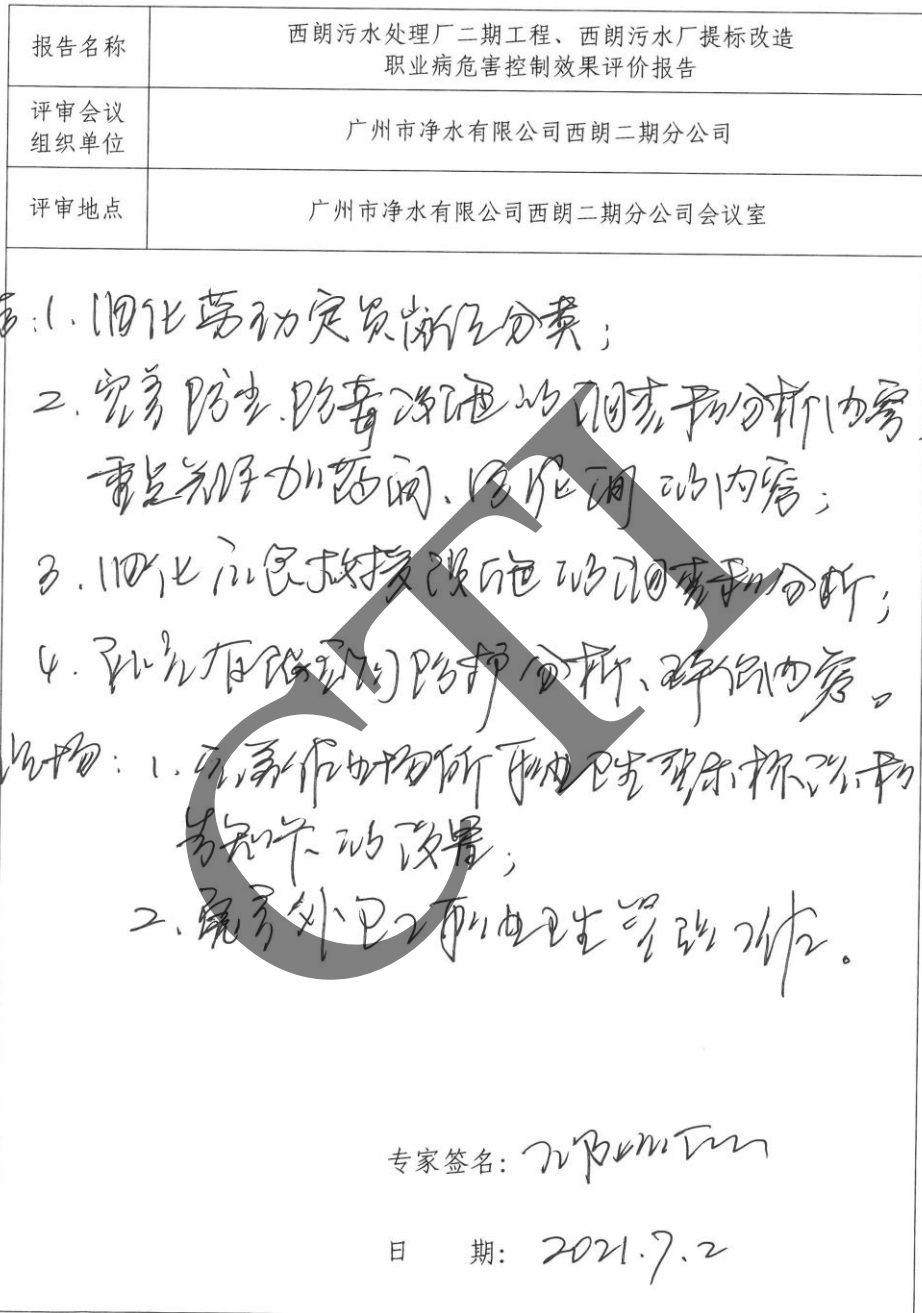 报告名称
西朗污水处理厂二期工程、西朗污水厂提标改造
职业病危害控制效果评价报告
评审会议
组织单位
广州市净水有限公司西朗二期分公司
评审地点
广州市净水有限公司西朗二期分公司会议室
告:1.细化劳动定员岗位分类;
2.完善防尘、防毒设施的调查和分析内容,
重点关注加药间、污泥间的内容;
3.细化应急救援设施的调查和分析;
4.补充有限空间防护分析、评价内容。
现场:1.完善作业场所职业卫生警示标识和
告知卡的设置;
2.完善外包工职业卫生管理工作。
CTI
专家签名:
日 期: 2021.7.2